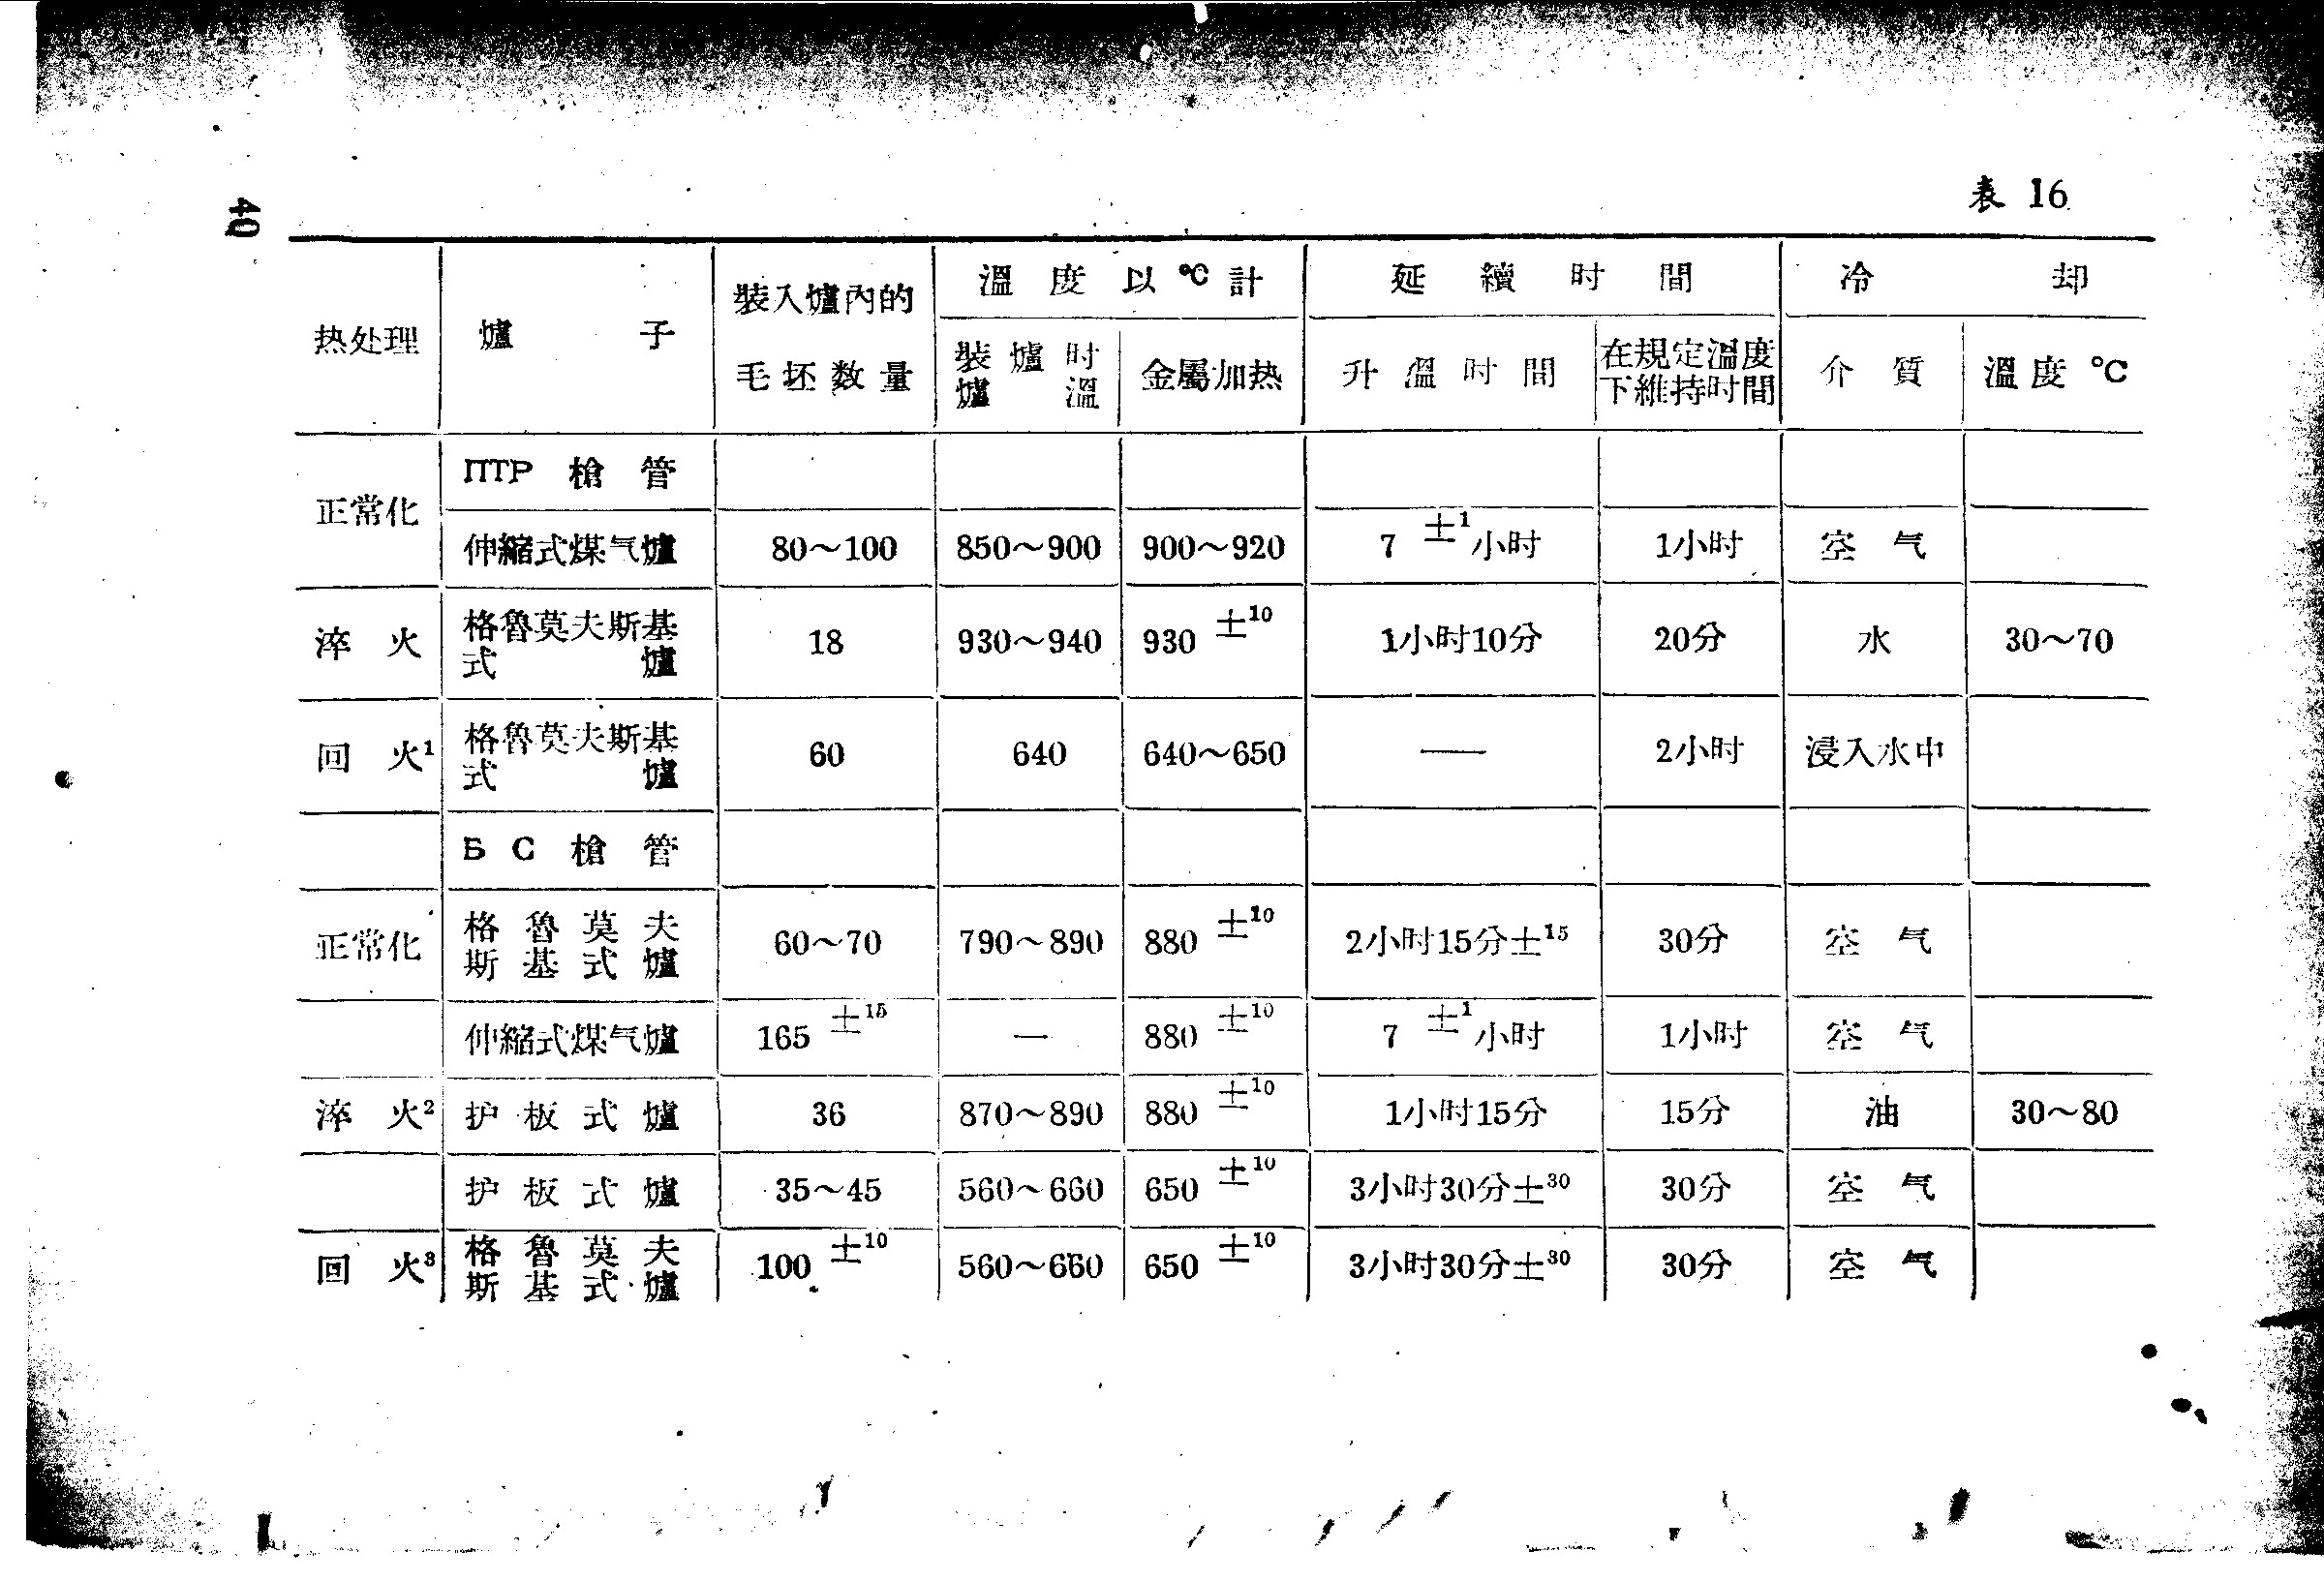 40
表 16
热处理 爐子 裝入爐內的毛坯数量 溫度以°C計 延續时間 冷却
裝爐时爐溫 金屬加热 升溫时間 在規定溫度下維持时間 介質 溫度 °C
正常化 ПТР 槍管
伸縮式煤气爐 80～100 850～900 900～920 7 ±1 小时 1小时 空气
淬火 格魯莫夫斯基式爐 18 930～940 930 ±10 1小时10分 20分 水 30～70
回火1 格魯莫夫斯基式爐 60 640 640～650 — 2小时 浸入水中
Б С 槍管
正常化 格魯莫夫斯基式爐 60～70 790～890 880 ±10 2小时15分±15 30分 空气
伸縮式煤气爐 165 ±15 — 880 ±10 7 ±1 小时 1小时 空气
淬火2 护板式爐 36 870～890 880 ±10 1小时15分 15分 油 30～80
护板式爐 35～45 560～660 650 ±10 3小时30分±30 30分 空气
回火3 格魯莫夫斯基式爐 100 ±10 560～660 650 ±10 3小时30分±30 30分 空气